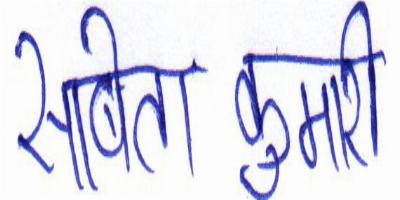 सबिता कुमारी